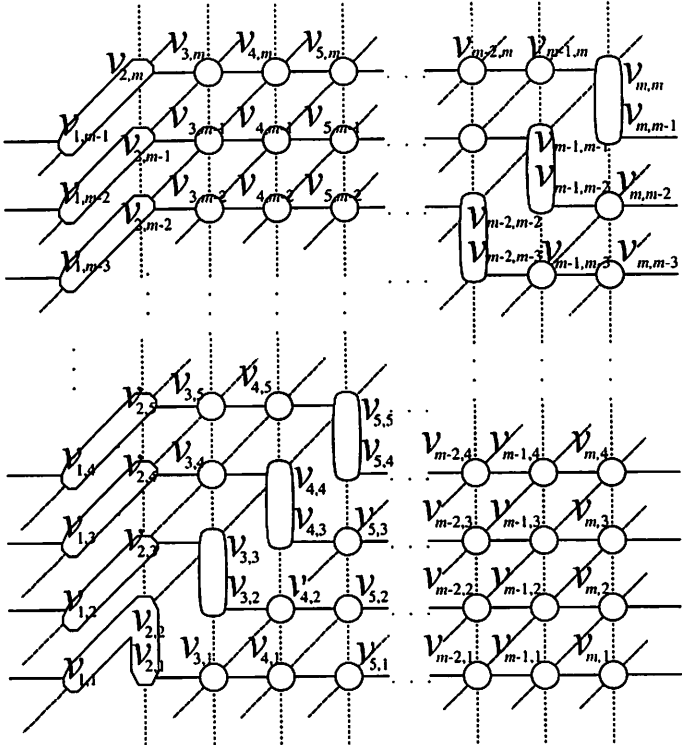 v3,m v4,m v5,m vm-2,m vm-1,m
v2,m
vm,m
v1,m-1 v2,m-1 v3,m-1 v4,m-1 v5,m-1 vm-1,m-1 vm,m-1
v1,m-2 v2,m-2 v3,m-2 v4,m-2 v5,m-2 vm-2,m-2 vm-1,m-2 vm,m-2
v1,m-3 vm-2,m-3 vm-1,m-3 vm,m-3
v2,5 v3,5 v4,5 v5,5
v1,4 v2,4 v3,4 v4,4 v5,4 vm-2,4 vm-1,4 vm,4
v1,3 v2,3 v3,3 v4,3 v5,3 vm-2,3 vm-1,3 vm,3
v1,2 v2,2 v3,2 v4,2 v5,2 vm-2,2 vm-1,2 vm,2
v1,1 v2,1 v3,1 v4,1 v5,1 vm-2,1 vm-1,1 vm,1